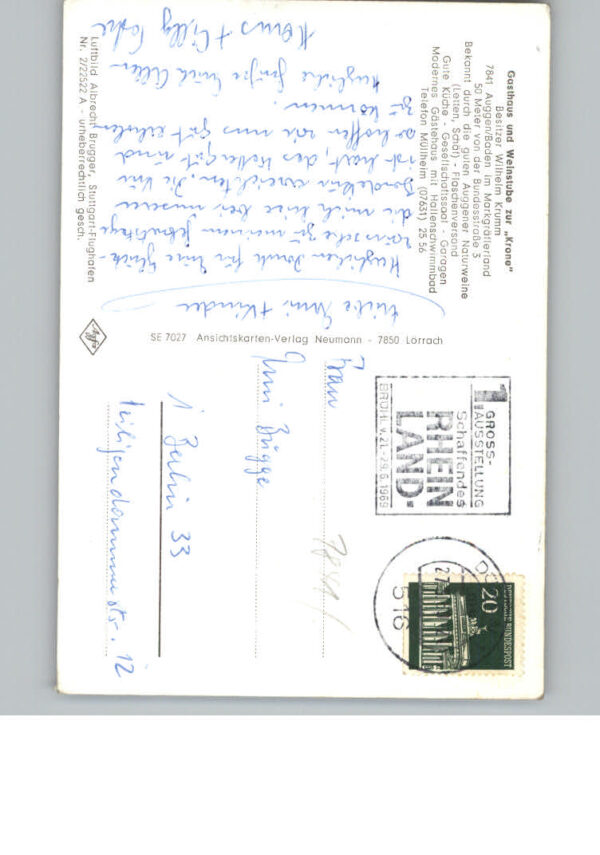 Gasthaus und Weinstube zur „Krone"
Besitzer Wilhelm Krumm
7841 Auggen/Baden im Markgräflerland
50 Meter von der Bundesstraße 3
Bekannt durch die guten Auggener Naturweine
(Letten, Schäf) - Flaschenversand
Gute Küche - Gesellschaftssaal - Garagen
Modernes Gästehaus mit Hallenschwimmbad
Telefon Müllheim (07631) 25 56
Liebe Anni + Kinder
Herzlichen Dank für Eure Glück-
wünsche zu meinem Geburtstage
die mich hier bei unserem
erreichten. Die Kur
ist hart, das Hotel gut und
so hoffen wir uns gut erholen
zu können.
Herzliche Grüße Euch Allen
Luftbild Albrecht Brugger, Stuttgart-Flughafen
Nr. 2/22522 A - urheberrechtlich gesch.
SE 7027 Ansichtskarten-Verlag Neumann - 7850 Lörrach
Agfa
1. GROSS-
AUSSTELLUNG
Schaffendes
RHEIN
LAND
BRÜHL v. 21.-29.6.1969
516
20
DEUTSCHE BUNDESPOST
Frau
Anni Brügge
1 Berlin 33
Heiligendammerstr. 12